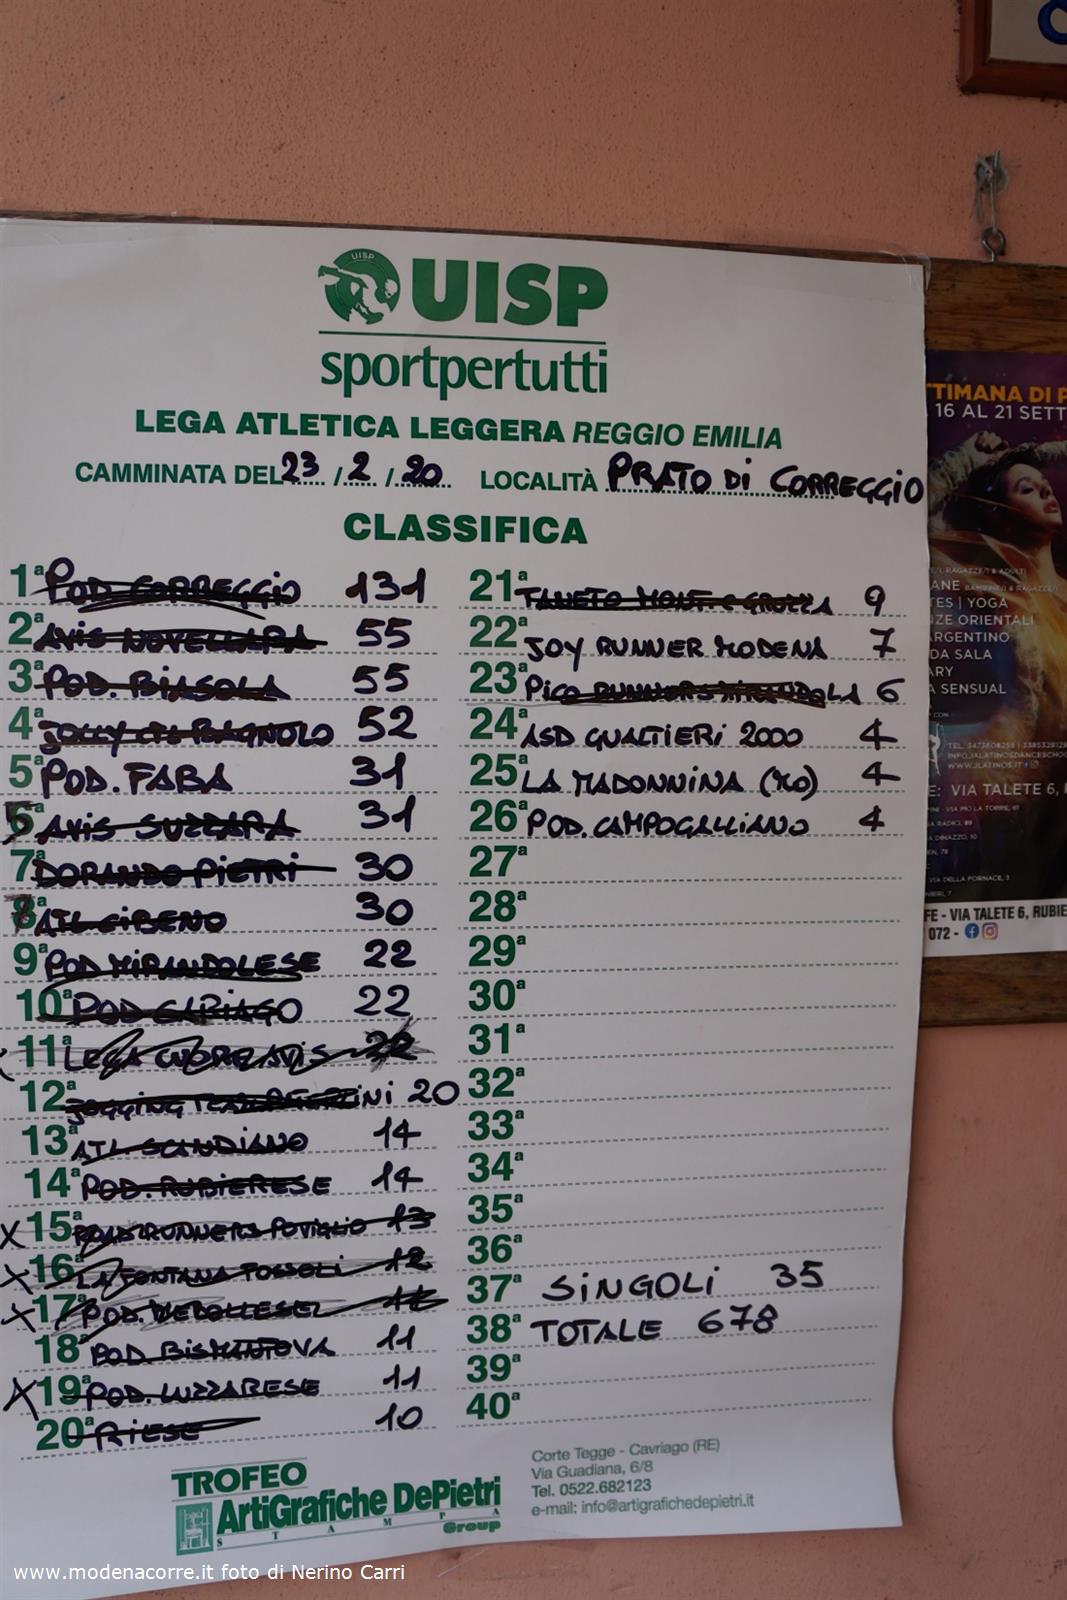 UISP
UISP
sportpertutti
LEGA ATLETICA LEGGERA REGGIO EMILIA
CAMMINATA DEL 23 / 2 / 20 LOCALITÀ PRATO DI CORREGGIO
CLASSIFICA
1ª POD CORREGGIO 131
2ª AVIS NOVELLARA 55
3ª POD. BIASOLA 55
4ª JOLLY BAGNOLO 52
5ª POD. FABA 31
6ª AVIS SUZZARA 31
7ª DORANDO PIETRI 30
8ª ATL CIBENO 30
9ª POD MIRANDOLESE 22
10ª POD CABIAGO 22
11ª LEGA CUORE AVIS 22
12ª JOGGING TEAM 20
13ª ATL. SCANDIANO 14
14ª POD. RUBIERESE 14
X 15ª ROAD RUNNERS POVIGLIO 13
X 16ª LA FONTANA 12
X 17ª POD.
18ª POD BISMANTOVA 11
X 19ª POD. LUZZARESE 11
20ª RIESE 10
21ª TANETO 9
22ª JOY RUNNER MODENA 7
23ª PICO RUNNERS MIRANDOLA 6
24ª ASD GUALTIERI 2000 4
25ª LA MADONNINA (MO) 4
26ª POD. CAMPOGALLIANO 4
27ª
28ª
29ª
30ª
31ª
32ª
33ª
34ª
35ª
36ª
37ª SINGOLI 35
38ª TOTALE 678
39ª
40ª
TROFEO
ArtiGrafiche DePietri
STAMPA
Group
Corte Tegge - Cavriago (RE)
Via Guadiana, 6/8
Tel. 0522.682123
e-mail: info@artigrafichedepietri.it
TTIMANA DI P
16 AL 21 SETT
ANE
TES | YOGA
NZE ORIENTALI
ARGENTINO
DA SALA
ARY
A SENSUAL
E: VIA TALETE 6,
VIA DELLA FORNACE, 3
FE - VIA TALETE 6, RUBIE
072 -
www.modenacorre.it foto di Nerino Carri